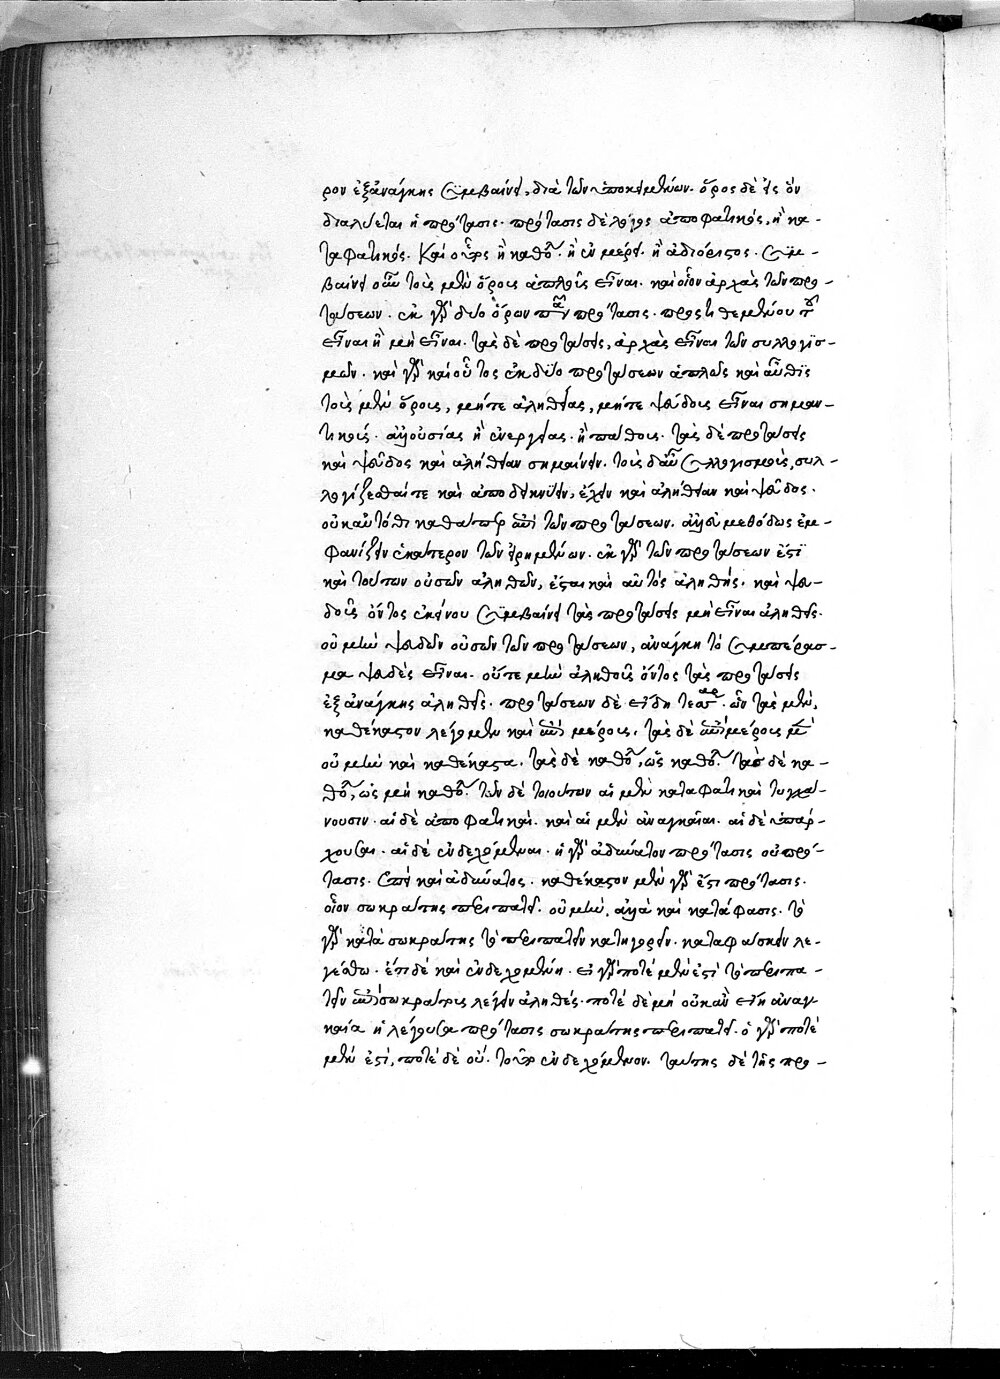 ρον ἐξανάγκης συμβαίνει, διὰ τῶν ὑποκειμένων. ὅρος δέ εἰς ὃν
διαλύεται ἡ πρότασις. πρότασις δὲ λόγος ἀποφατικός, ἢ κα-
ταφατικός. καὶ οὗτος ἢ καθόλου. ἢ ἐν μέρει. ἢ ἀδιόριστος. συμ-
βαίνει οὖν τοὺς μὲν ὅρους ἁπλοῦς εἶναι. καὶ οἷον ἀρχὰς τῶν προ-
τάσεων. ἐκ γὰρ δύο ὅρων πᾶσα πρότασις. προστιθεμένου τοῦ
εἶναι ἢ μὴ εἶναι. τὰς δὲ προτάσεις, ἀρχὰς εἶναι τῶν συλλογισ-
μῶν. καὶ γὰρ καὶ οὗτος ἐκ δύο προτάσεων ἁπλοῦς καὶ αὖθις
τοὺς μὲν ὅρους, μήτε ἀληθείας, μήτε ψεύδους εἶναι σημαν-
τικούς. ἀλλ' οὐσίας ἢ ἐνεργείας. ἢ πάθους. τὰς δὲ προτάσεις
καὶ ψεῦδος καὶ ἀλήθειαν σημαίνειν. τοὺς δ' αὖ συλλογισμοὺς, συλ-
λογίζεσθαί τε καὶ ἀποδεικνύειν, ἔχειν καὶ ἀλήθειαν καὶ ψεῦδος.
οὐκ αὐτόθι καθάπερ ἐπὶ τῶν προτάσεων. ἀλλὰ μεθόδως ἐμ-
φανίζειν ἑκάτερον τῶν εἰρημένων. ἐκ γὰρ τῶν προτάσεων ἐστὶ
καὶ τούτων οὐσῶν ἀληθῶν, ἔσται καὶ αὐτὸς ἀληθής. καὶ ψευ-
δοῦς ὄντος ἐκείνου συμβαίνει τὰς προτάσεις μὴ εἶναι ἀληθεῖς.
οὐ μὴν ψευδῶν οὐσῶν τῶν προτάσεων, ἀνάγκη τὸ συμπέρασ-
μα ψευδὲς εἶναι. οὔτε μὴν ἀληθοῦς ὄντος τὰς προτάσεις
ἐξ ἀνάγκης ἀληθεῖς. προτάσεων δὲ εἴδη τέσσαρα. ὧν τὰς μὲν,
καθέκαστον λέγομεν καὶ ἐπὶ μέρους. τὰς δὲ ἐπὶ μέρους μὲν
οὐ μὴν καὶ καθέκαστα. τὰς δὲ καθόλου, ὡς καθόλου. τὰς δὲ κα-
θόλου, ὡς μὴ καθόλου. τῶν δὲ τοιούτων αἱ μὲν καταφατικαὶ τυγχά-
νουσιν. αἱ δὲ ἀποφατικαί. καὶ αἱ μὲν ἀναγκαῖαι. αἱ δὲ ὑπάρ-
χουσαι. αἱ δὲ ἐνδεχόμεναι. ἡ γὰρ ἀδύνατον πρότασις οὐ πρό-
τασις. ἐπεὶ καὶ ἀδύνατος. καθέκαστον μὲν γάρ ἐστι πρότασις.
οἷον σωκράτης περιπατεῖ. οὐ μὴν, ἀλλὰ καὶ κατάφασις. τὸ
γὰρ κατὰ σωκράτης τὸ περιπατεῖν κατηγορεῖν. καταφάσκειν λε-
γέσθω. ἔτι δὲ καὶ ἐνδεχομένη. εἰ γὰρ ποτὲ μὲν ἐστὶ τὸ περιπα-
τεῖν ἐπὶ σωκράτους λέγειν ἀληθές. ποτὲ δὲ μὴ οὐκ ἂν εἴη ἀναγ-
καία ἡ λέγουσα πρότασις σωκράτης περιπατεῖ. ὁ γὰρ ποτὲ
μὲν ἐστί, ποτὲ δὲ οὔ. τοῦτο ἐνδεχόμενον. ταύτης δὲ τῆς προ-